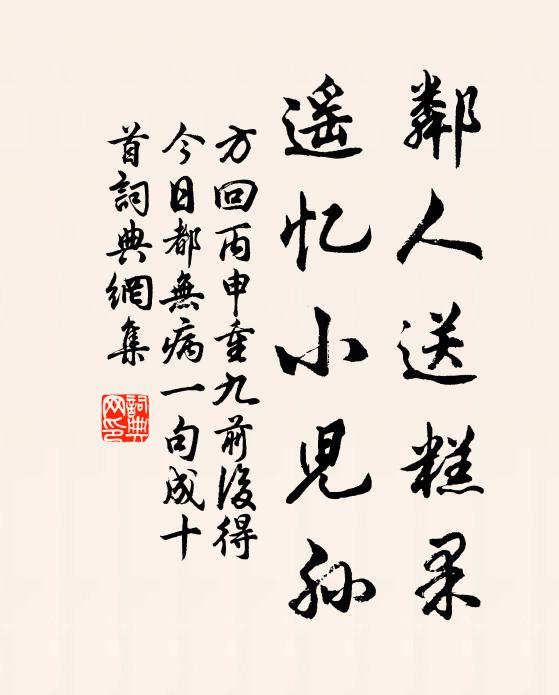 鄰人送糕果
遥忆小児孙
方回丙申重九前後得
今日都無病一句成十
首詞典網集
詞典
网印